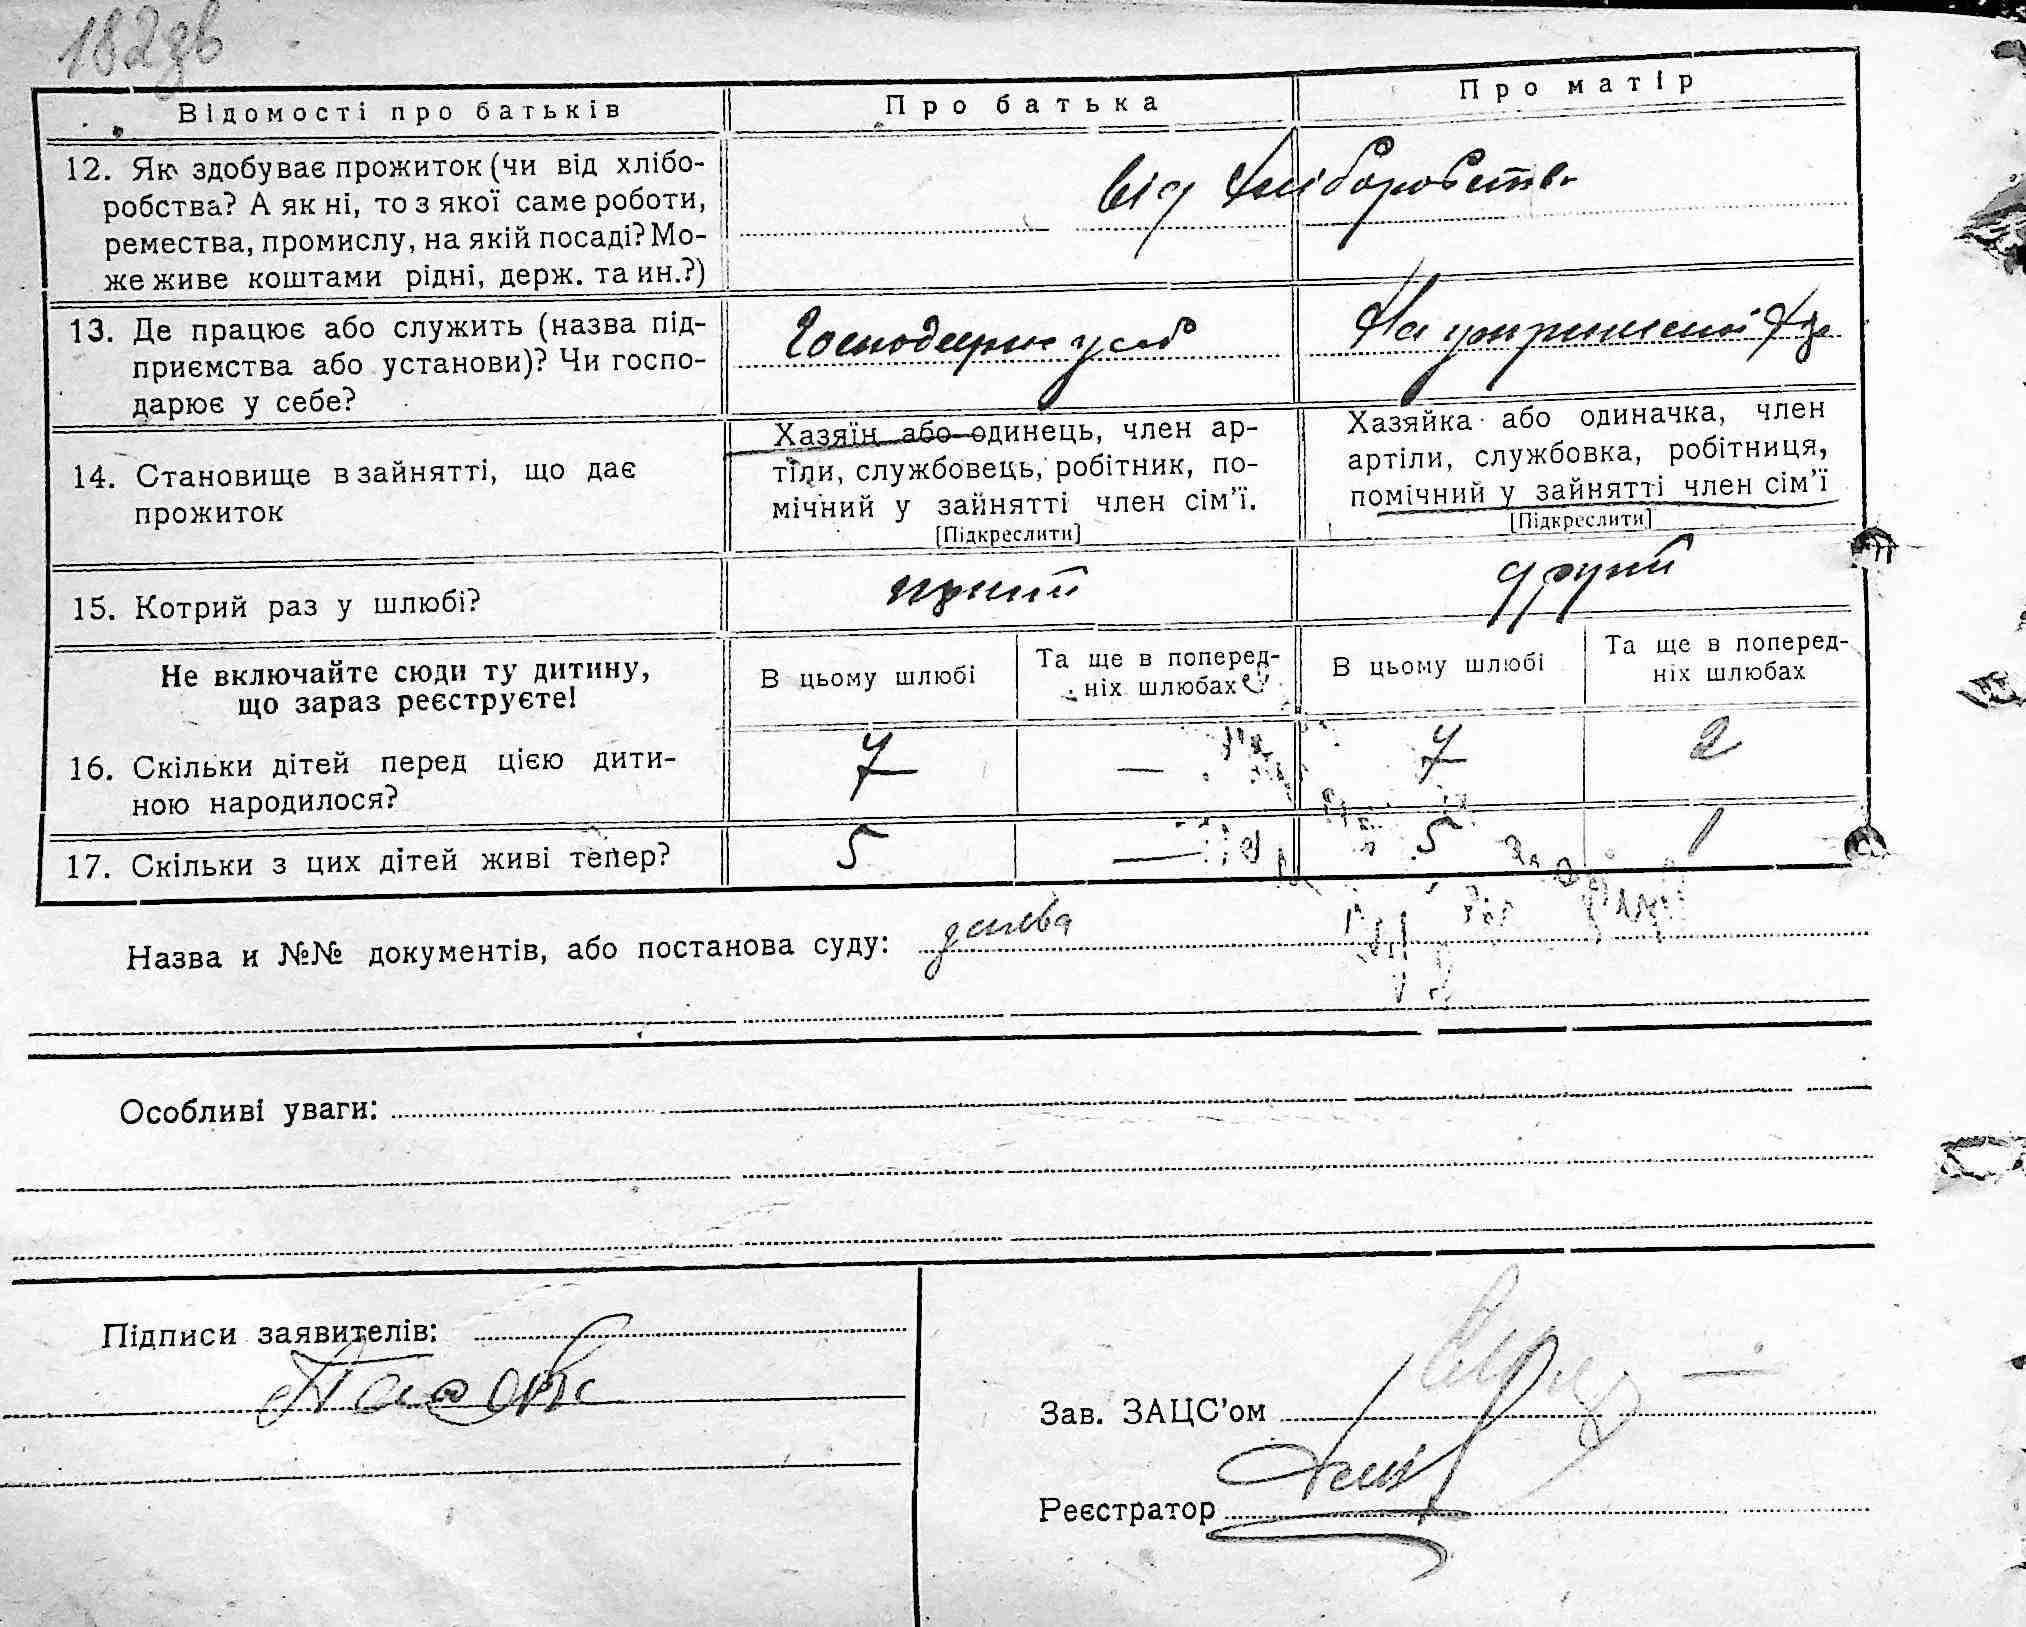 182зв
Відомості про батьків
Про батька
Про матір
12. Як здобуває прожиток (чи від хлібо-
робства? А як ні, то з якої саме роботи,
ремества, промислу, на якій посаді? Мо-
же живе коштами рідні, держ. та ин.?)
від хліборобства
13. Де працює або служить (назва під-
приємства або установи)? Чи госпо-
дарює у себе?
Господарює у себе
На утриманні
14. Становище в зайнятті, що дає
прожиток
Хазяїн або одинець, член ар-
тіли, службовець, робітник, по-
мічний у зайнятті член сім'ї.
[Підкреслити]
Хазяйка або одиначка, член
артіли, службовка, робітниця,
помічний у зайнятті член сім'ї
[Підкреслити]
15. Котрий раз у шлюбі?
другий
Не включайте сюди ту дитину,
що зараз реєструєте!
В цьому шлюбі
Та ще в поперед-
ніх шлюбах
В цьому шлюбі
Та ще в поперед-
ніх шлюбах
16. Скільки дітей перед цією дити-
ною народилося?
7 — 7 2
17. Скільки з цих дітей живі тепер?
5 — 5 1
Назва и №№ документів, або постанова суду:
Особливі уваги:
Підписи заявителів:
Зав. ЗАЦС'ом
Реєстратор